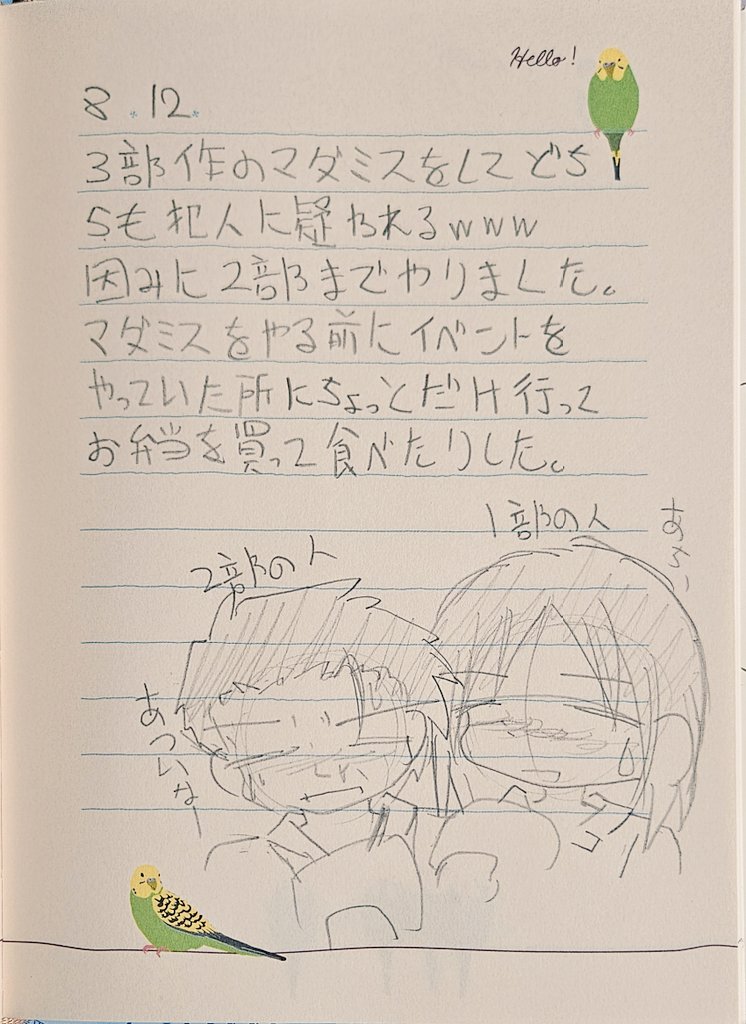 Hello!
8.12.
3部作のマダミスをしてどち
らも犯人に疑われるwww
因みに2部までやりました。
マダミスをやる前にイベントを
やっていた所にちょっとだけ行って
お弁当を買って食べたりしました。
1部の人
2部の人
あついなー